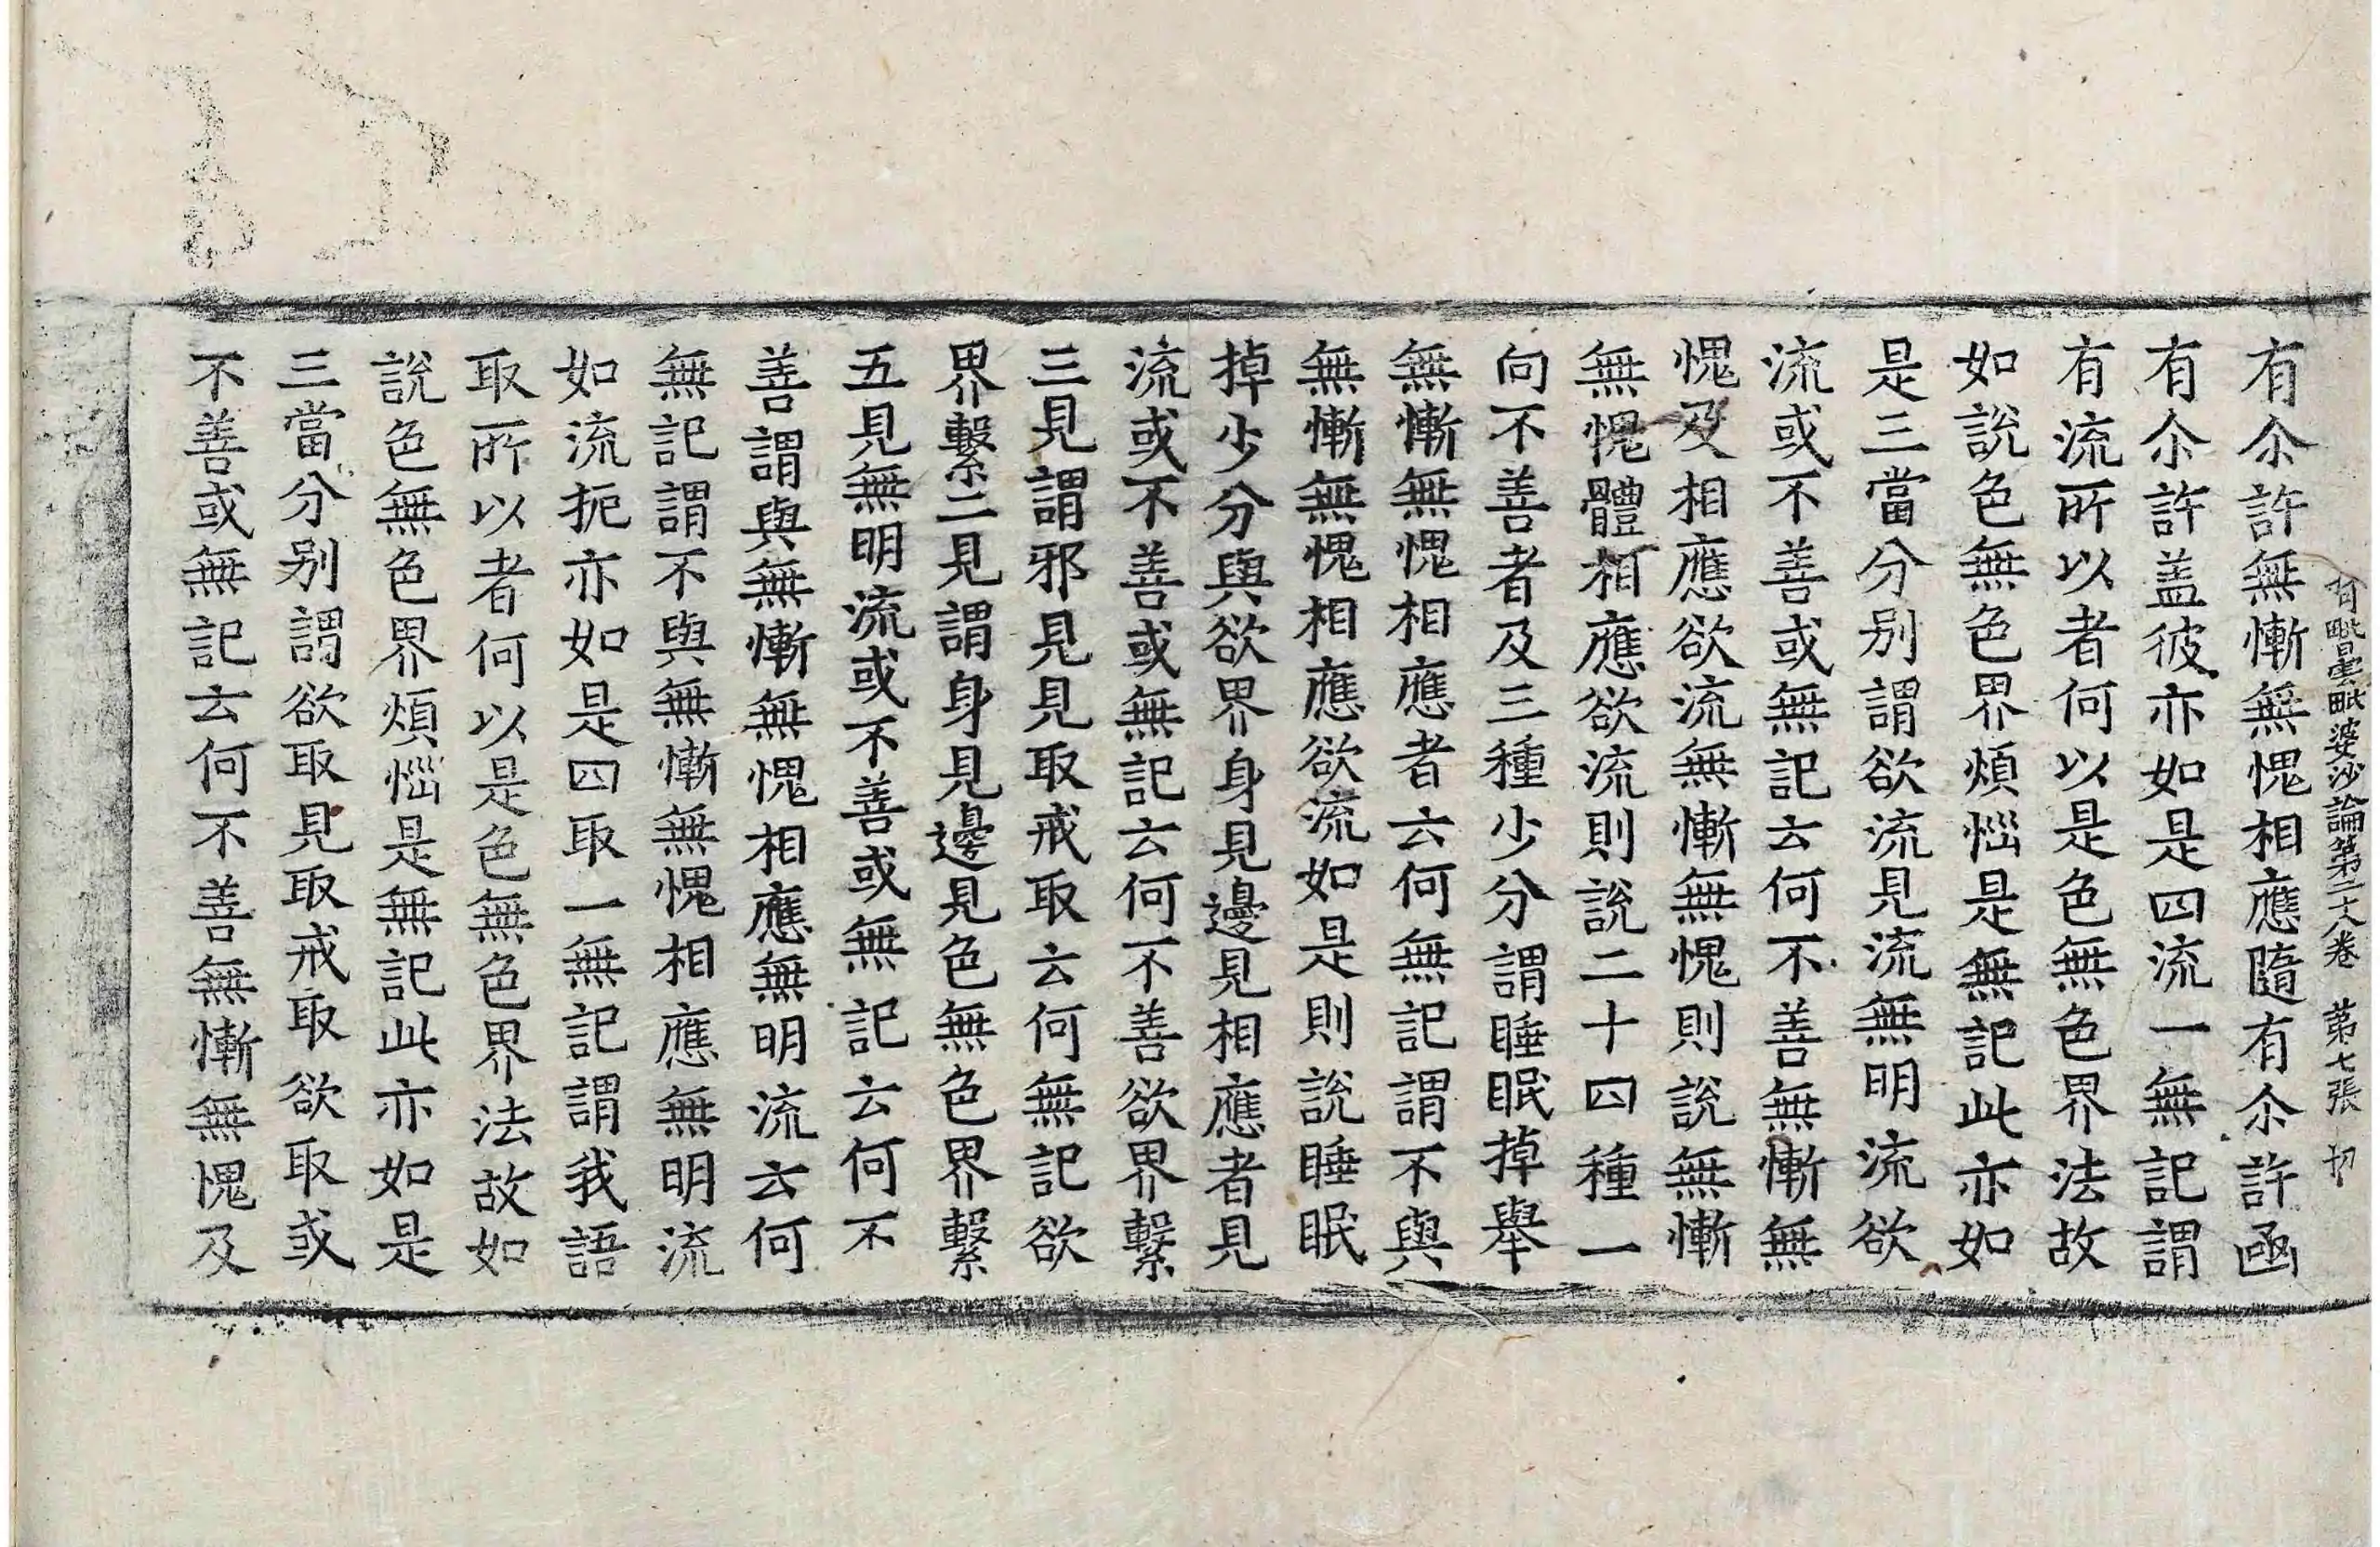 阿毗曇毗婆沙論第二十八卷 第七張 切
有尒許無慚無愧相應隨有尒許函
有尒許盖彼亦如是四流一無記謂
有流所以者何以是色無色界法故
如說色無色界煩惱是無記此亦如
是三當分別謂欲流見流無明流欲
流或不善或無記云何不善無慚無
愧及相應欲流無慚無愧則說無慚
無愧體相應欲流則說二十四種一
向不善者及三種少分謂睡眠掉舉
無慚無愧相應者云何無記謂不與
無慚無愧相應欲流如是則說睡眠
掉少分與欲界身見邊見相應者見
流或不善或無記云何不善欲界繫
三見謂邪見見取戒取云何無記欲
界繫二見謂身見邊見色無色界繫
五見無明流或不善或無記云何不
善謂與無慚無愧相應無明流云何
無記謂不與無慚無愧相應無明流
如流扼亦如是四取一無記謂我語
取所以者何以是色無色界法故如
說色無色界煩惱是無記此亦如是
三當分別謂欲取見取戒取欲取或
不善或無記云何不善無慚無愧及